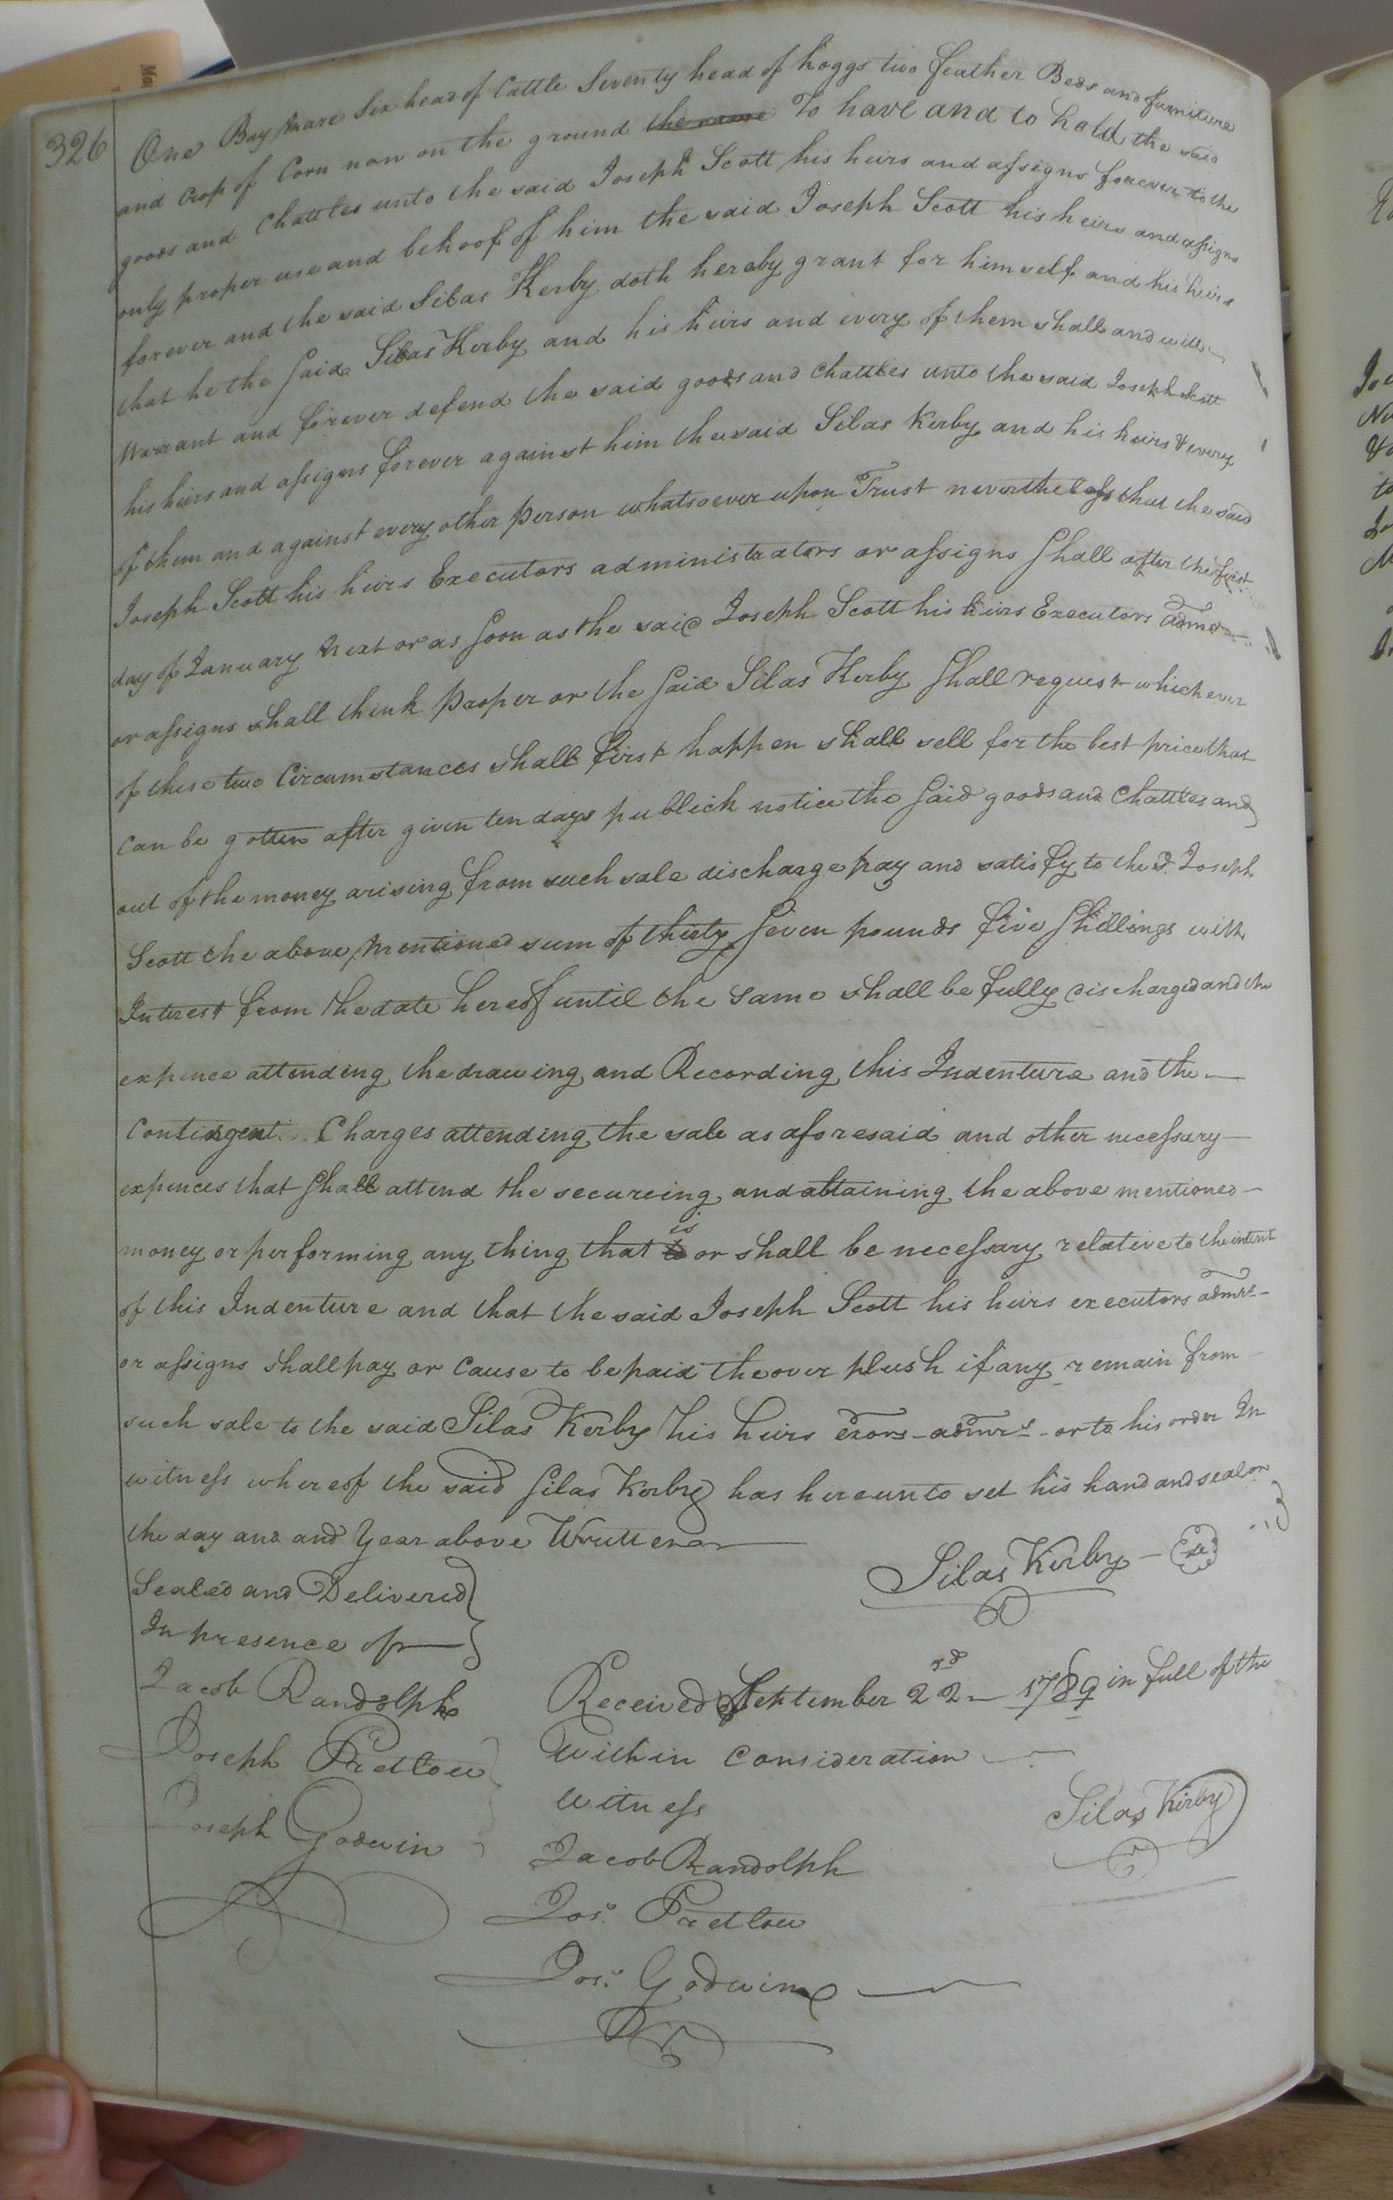 326
One Bay Mare Six head of Cattle Seventy head of hoggs two feather Beds and furniture
and crop of Corn now on the ground the same To have and to hold the said
goods and Chattles unto the said Joseph Scott his heirs and assigns forever to the
only proper use and behoof of him the said Joseph Scott his heirs and assigns
forever and the said Silas Kerby doth hereby grant for himself and his heirs
that he the Said Silas Kerby and his heirs and every of them shall and will
Warrant and forever defend the said goods and chattles unto the said Joseph Scott
his heirs and assigns forever against him the said Silas Kerby and his heirs & every
of them and against every other person whatsoever upon Trust nevertheless that the said
Joseph Scott his heirs Executors administrators or assigns Shall after the first
day of January next or as Soon as the said Joseph Scott his heirs Executors admrs
or assigns shall think proper or the Said Silas Kerby Shall request whichever
of these two Circumstances shall first happen shall sell for the best price that
can be gotten after given ten days publick notice the Said goods and Chattles and
out of the money arising from such sale discharge pay and satisfy to the sd. Joseph
Scott the above mentioned sum of thirty Seven pounds five Shillings with
Interest from the date hereof until the same shall be fully discharged and the
expence attending the drawing and Recording this Indenture and the
Contingent Charges attending the sale as aforesaid and other necessary
expences that Shall attend the secureing and attaining the above mentioned
is
money or performing any thing that to or shall be necessary relative to the intent
of this Indenture and that the said Joseph Scott his heirs executors admrs
or assigns shall pay or cause to be paid the over plush if any remain from
such sale to the said Silas Kerby his heirs exors admrs or to his order In
witness whereof the said Silas Kerby has hereunto set his hand and seal on
the day and and Year above Written
Sealed and Delivered
In presence of
Silas Kerby
Jacob Randolph
Joseph Pretlow
Joseph Godwin
Received September 22nd 1789 in full of the
Within Consideration
Silas Kirby
Witness
Jacob Randolph
Jos. Pretlow
Jos. Godwin